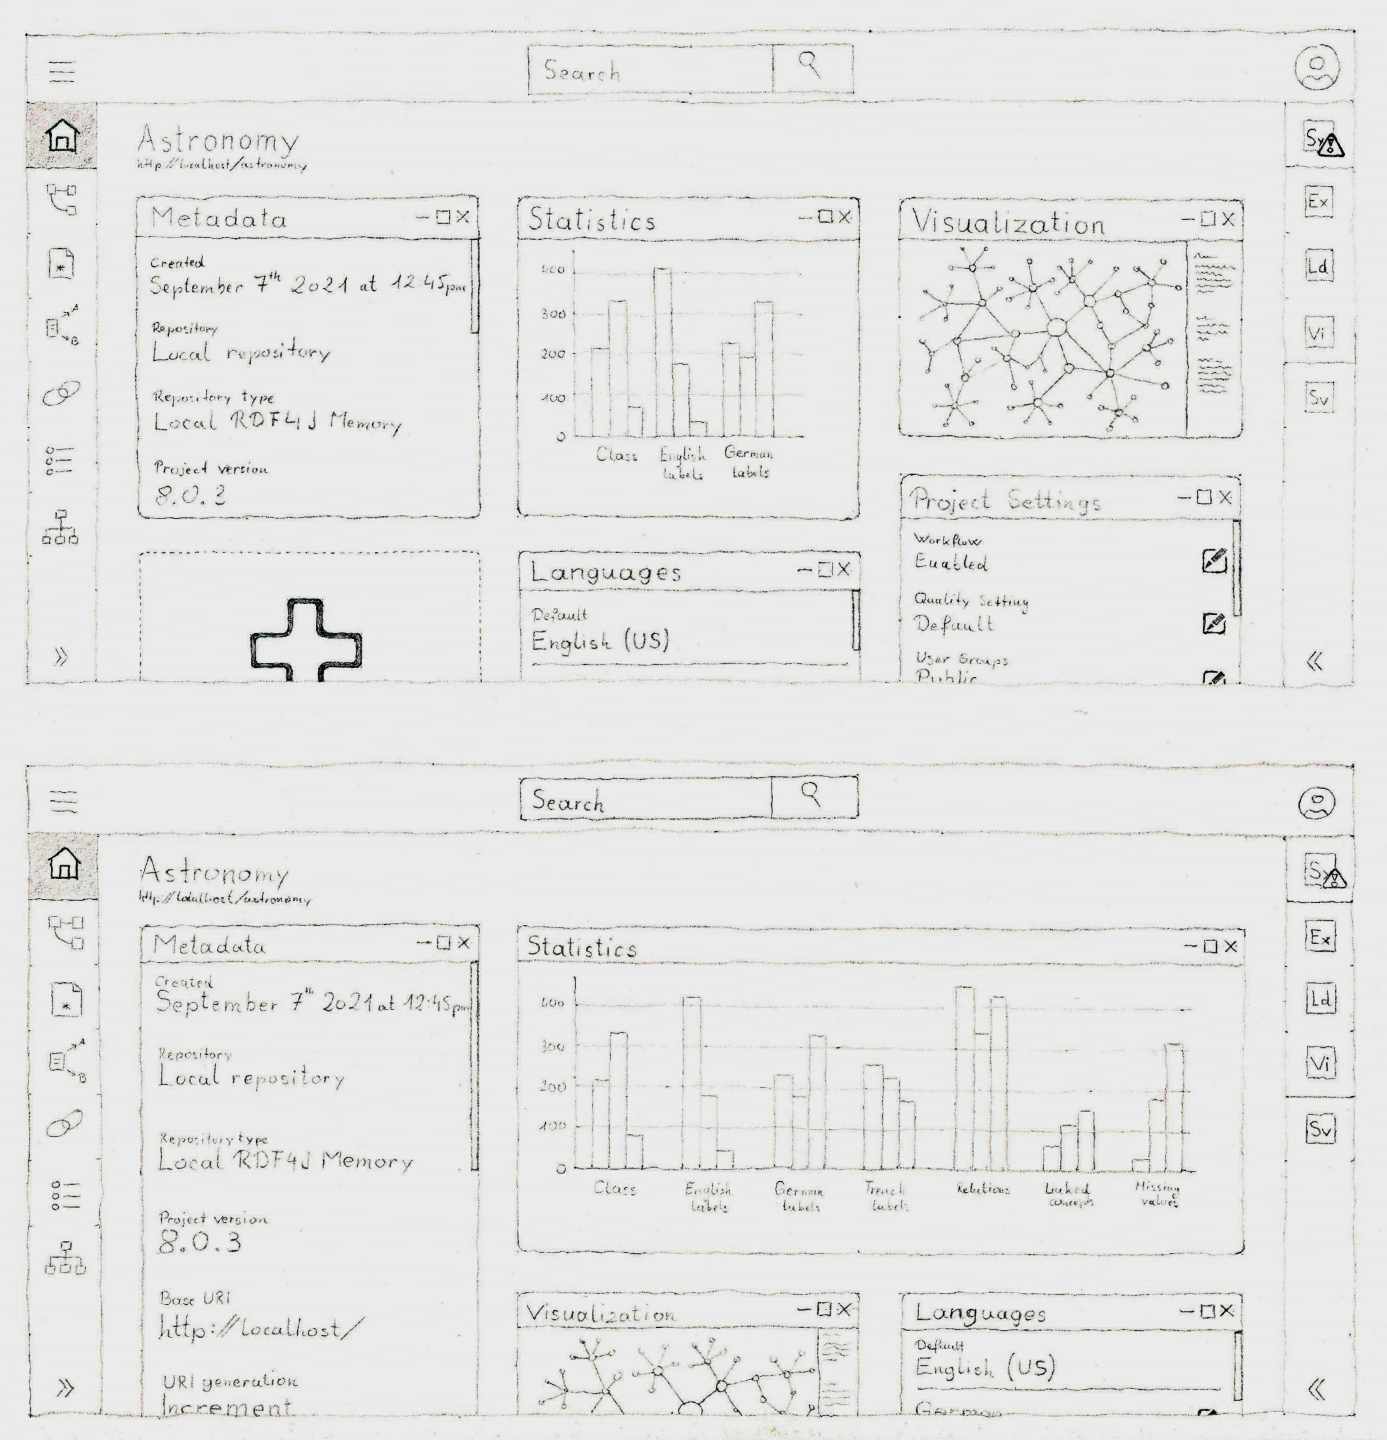 Search
Astronomy
http://localhost/astronomy
Sy
Ex
Ld
Vi
Sv
Metadata
Created
September 7th 2021 at 12:45pm
Repository
Local repository
Repository type
Local RDF4J Memory
Project version
8.0.3
Statistics
400
300
200
100
0
Class
English
labels
German
labels
Visualization
Project Settings
Workflow
Enabled
Quality Setting
Default
User Groups
Public
Languages
Default
English (US)
A
B
Search
Astronomy
http://localhost/astronomy
Sy
Ex
Ld
Vi
Sv
Metadata
Created
September 7th 2021 at 12:45pm
Repository
Local repository
Repository type
Local RDF4J Memory
Project version
8.0.3
Base URI
http://localhost/
URI generation
Increment
Statistics
400
300
200
100
0
Class
English
labels
German
labels
French
labels
Relations
Linked
concepts
Missing
values
Visualization
Languages
Default
English (US)
German
A
B